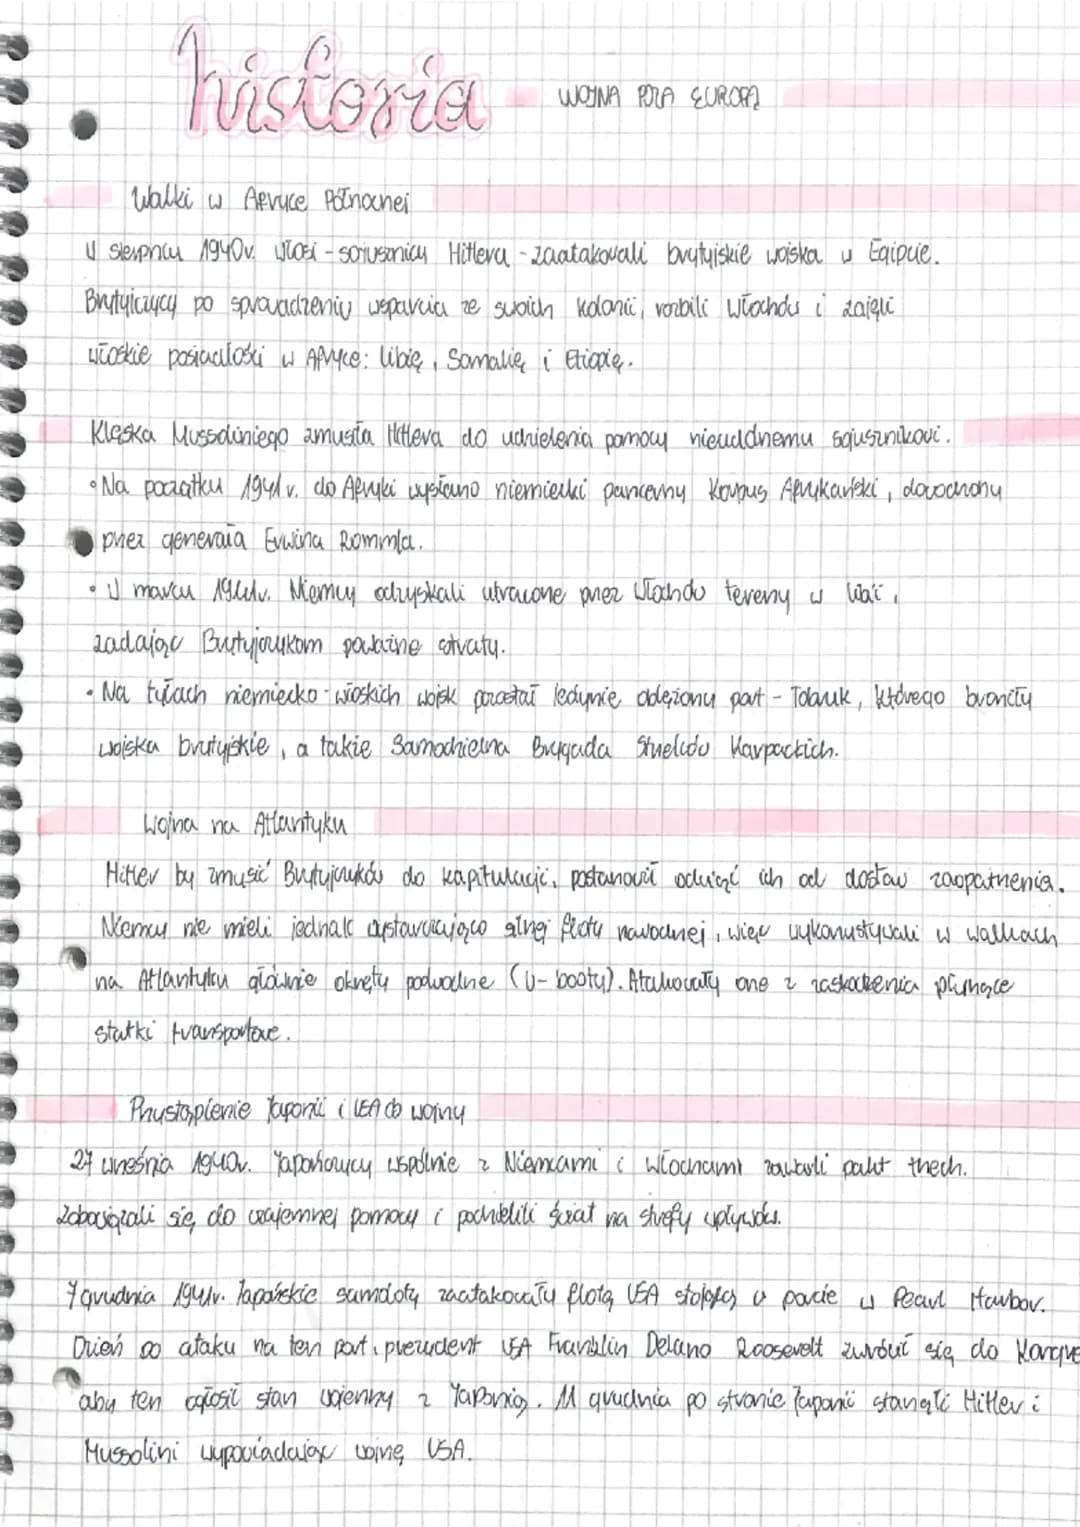 historia WOJNA POZA EUROPĄ
Walki w Afryce Północnej
W sierpniu 1940r. Włosi - sojusznicy Hitlera - zaatakowali brytyjskie wojska w Egipcie.
Brytyjczycy po sprowadzeniu wsparcia ze swoich kolonii, rozbili Włochów i zajęli
włoskie posiadłości w Afryce: Libię, Somalię i Etiopię.
Klęska Mussoliniego zmusiła Hitlera do udzielenia pomocy nieudolnemu sojusznikowi.
• Na początku 1941 r. do Afryki wysłano niemiecki pancerny Korpus Afrykański, dowodzony
przez generała Erwina Rommla.
• W marcu 1941r. Niemcy odzyskali utracone przez Włochów tereny w
zadając Brytyjczykom poważne straty.
• Na tyłach niemiecko-włoskich wojsk pozostał jedynie oblężony port - Tobruk, którego broniły
wojska brytyjskie, a także Samodzielna Brygada Strzelców Karpackich.
Wojna na Atlantyku
Hitler by zmusić Brytyjczyków do kapitulacji, postanowił odciąć ich od dostaw zaopatrzenia.
Niemcy nie mieli jednak wystarczająco silnej floty nawodnej, więc wykorzystywali w walkach
na Atlantyku głównie okręty podwodne (U-booty). Atakowały one z zaskoczenia płynące
statki transportowe.
Przystąpienie Japonii i USA do wojny
27 września 1940r. Japończycy wspólnie z Niemcami i Włochami zawarli pakt trzech.
Zobowiązali się do wzajemnej pomocy i podzielili świat na strefy wpływów.
7 grudnia 1941r. Japońskie samoloty zaatakowały flotę USA stojącą w porcie w Pearl Harbor.
Dzień po ataku na ten port, prezydent USA Franklin Delano Roosevelt zwrócił się do Kongre
aby ten ogłosił stan wojenny z Japonią. 11 grudnia po stronie Japonii stanęli Hitler i
Mussolini wypowiadając wojnę USA.